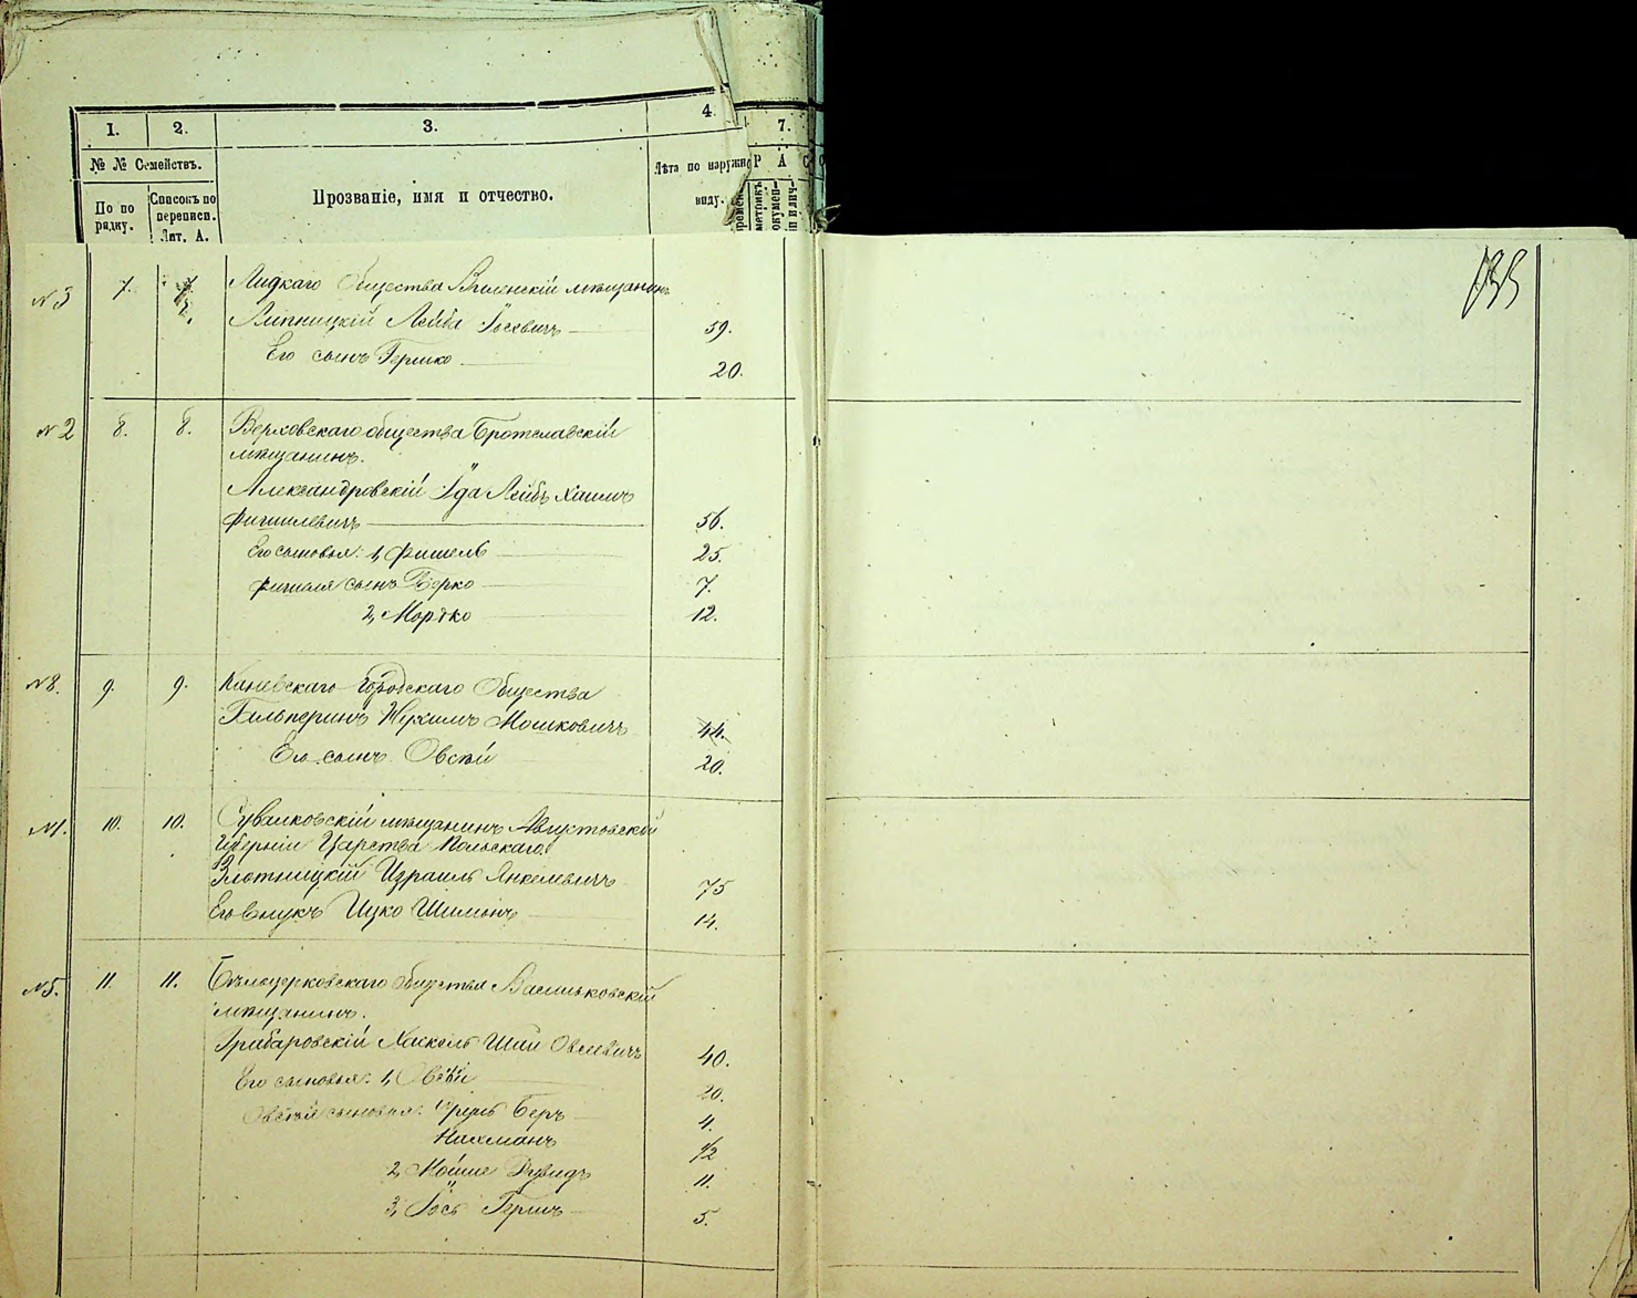 1. 2. 3. 4. 7.
№ № Семействъ.
По по рядку.
Списокъ по переписи. Лит. А.
Прозваніе, имя и отчество.
Лѣта по наружно виду.
Р А С
метрикъ
докумен-
155
№ 3 7. Лидкаго Общества Виленскій мѣщанинъ
Липницкій Лейба Іосевичъ 59.
Его сынъ Гершко 20.
№ 2 8. 8. Верховскаго общества Бротславскій
мѣщанинъ.
Александровскій Іуда Лейбъ Хаимъ
Фишилевичъ 56.
Его сыновья: 1, Фишель 25.
Фишеля сынъ Берко 7.
2, Мордко 12.
№ 8. 9. 9. Каневскаго Городскаго Общества
Гальперинъ Нухимъ Мошковичъ 44.
Его сынъ Овсѣй 20.
№ 1. 10. 10. Сувалковскій мѣщанинъ Августовской
Губерніи Царства Польскаго
Злотницкій Израиль Янкелевичъ 75
Его внукъ Ицко Шимонъ 14.
№ 5. 11. 11. Бѣлоцерковскаго Общества Васильковскій
мѣщанинъ.
Грибаровскій Хаскель Шай Овсеевичъ 40.
Его сыновья: 1, Овсѣй 20.
Овсѣя сыновья: Беръ 4.
Нахманъ 1/2
2, Мойше Дувидъ 11.
3, Іось Гершъ 5.